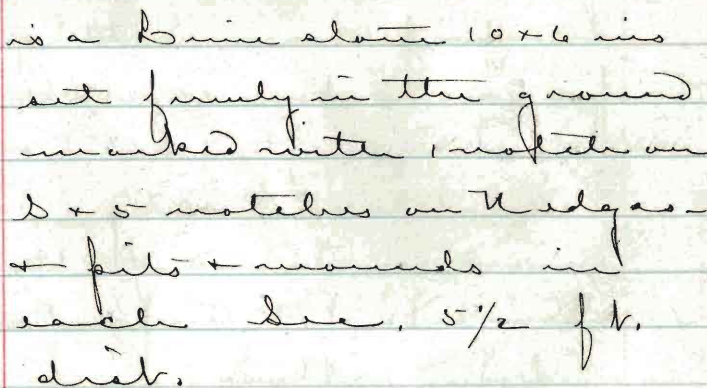 is a Lime stone 10x6 ins
set firmly in the ground
marked with 1 notch on
S + 5 notches on N edges -
+ pits + mounds in
each Sec. 5 1/2 ft.
dist.